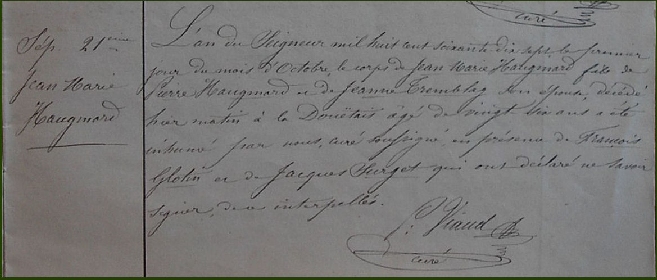 curé
Sép. 21ème
Jean Marie
Haugmard
L'an du Seigneur mil huit cent soixante dix sept, le premier
jour du mois d'Octobre, le corps de Jean Marie Haugmard fils de
Pierre Haugmard et de Jeanne Tremblez son épouse, décédé
hier matin à la Douëtais âgé de vingt six ans a été
inhumé par nous, curé soussigné, en présence de François
Glotin et de Jacques Surget qui ont déclaré ne savoir
signer, de ce interpellés.
P. Viaud
curé